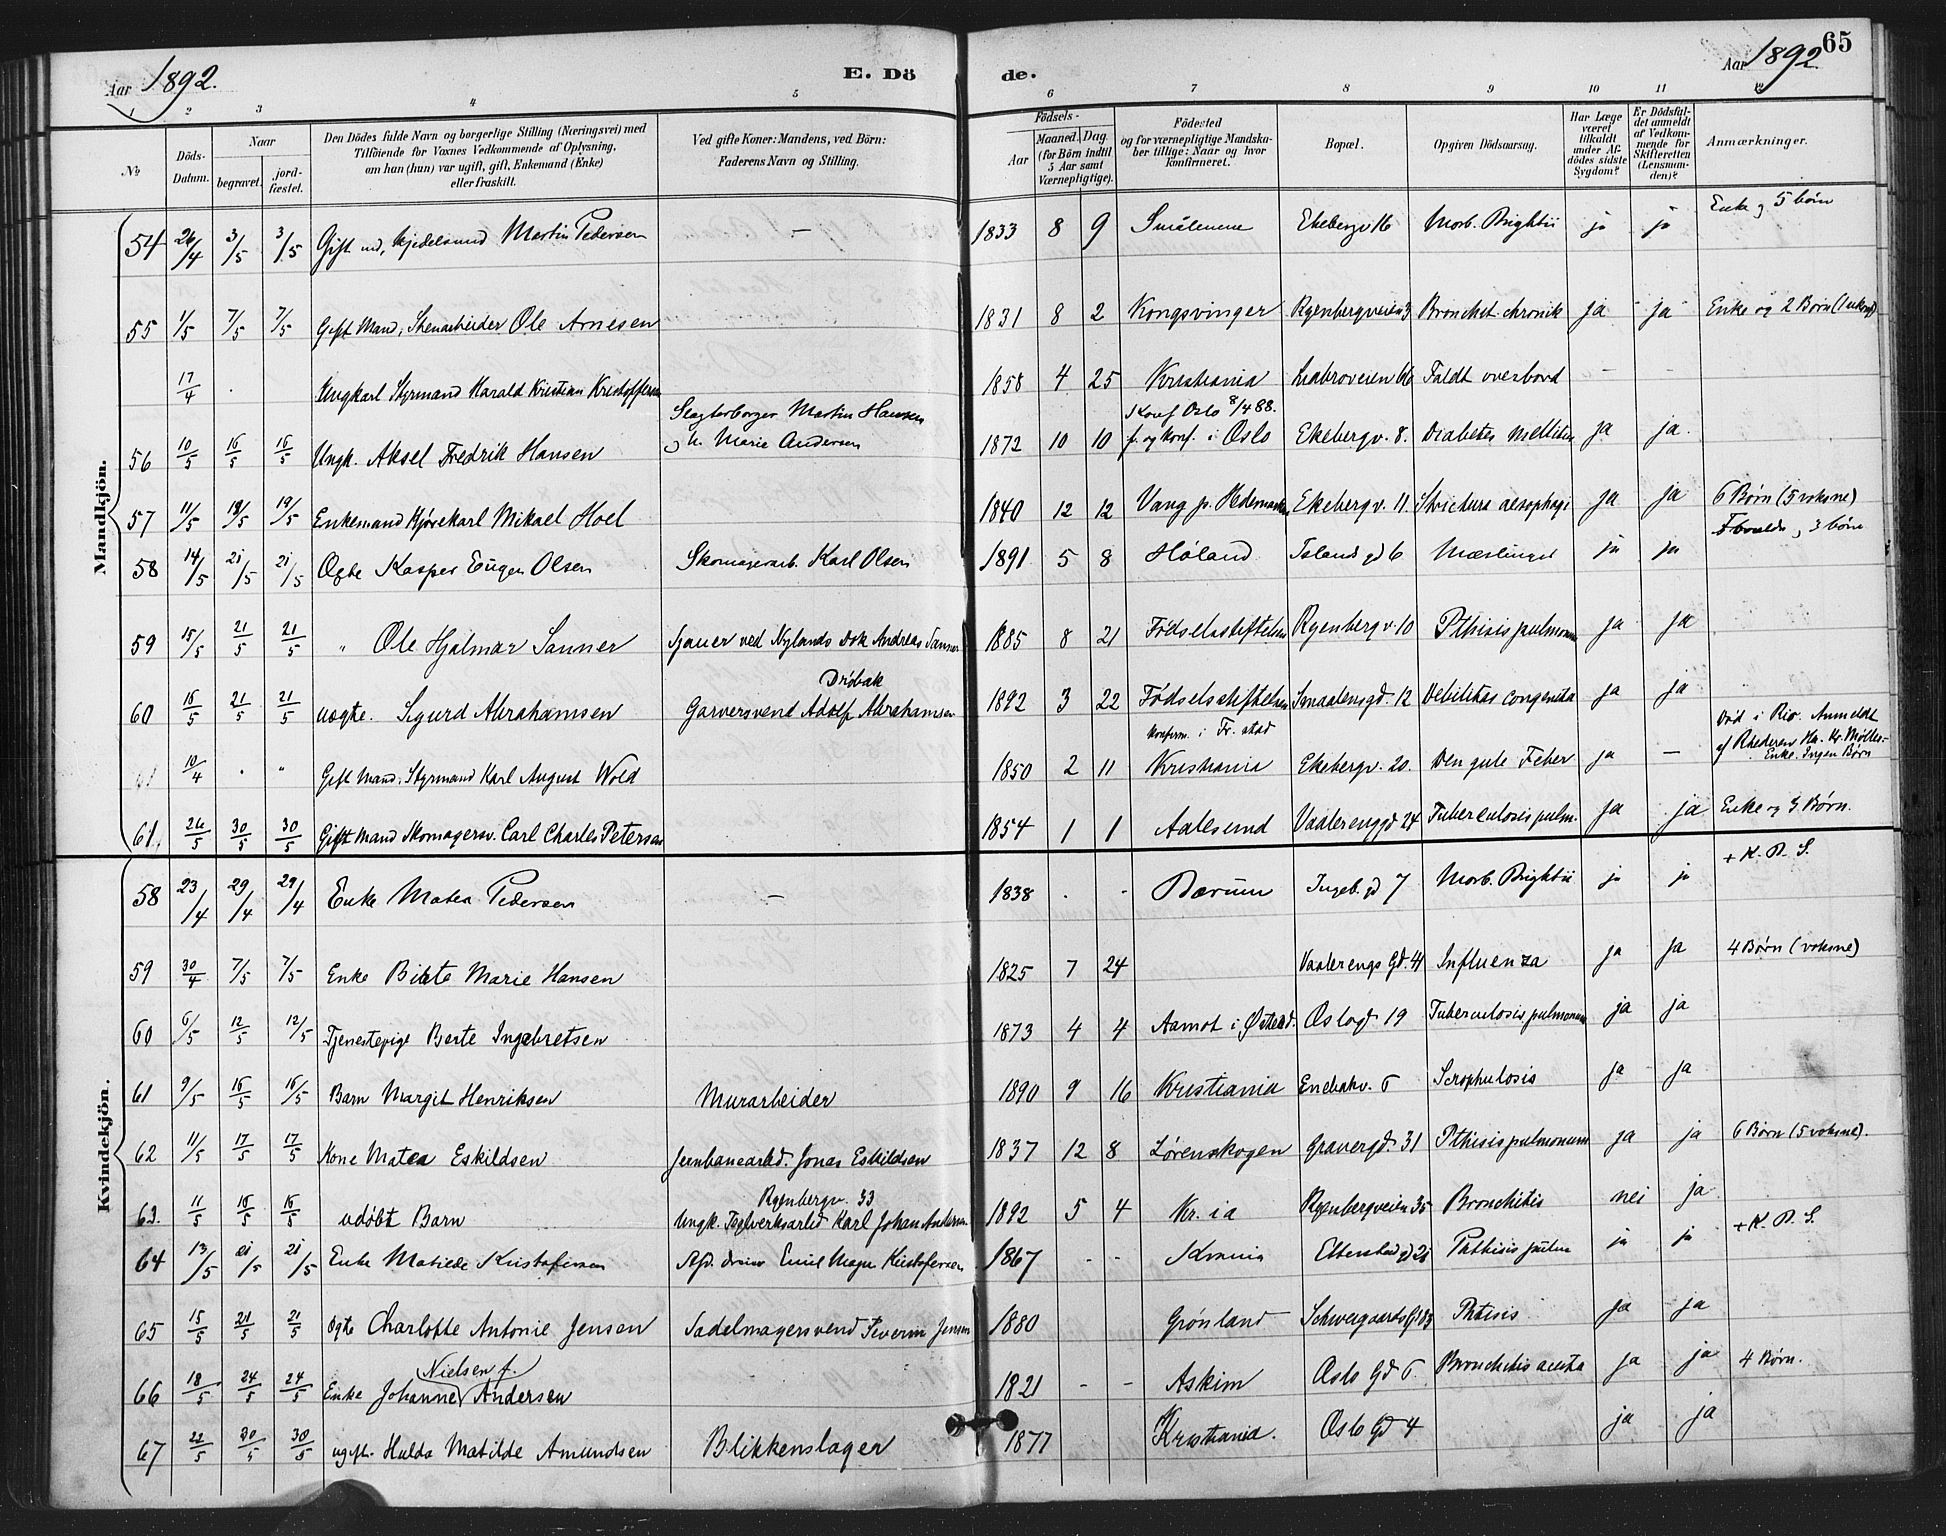 Aar 1892. E. Dö de. Aar 1892. 65
1 2 3 4 5 6 7 8 9 10 11 12
№ Döds-Datum. Naar begravet. jord-fæstet. Den Dödes fulde Navn og borgerlige Stilling (Næringsvei) med Tilföiende for Voxnes Vedkommende af Oplysning, om han (hun) var ugift, gift, Enkemand (Enke) eller fraskilt. Ved gifte Koner: Mandens, ved Börn: Faderens Navn og Stilling. Födsels- Aar Maaned. Dag. (for Börn indtil 5 Aar samt Værnepligtige). Födested og for værnepligtige Mandskaber tillige: Naar og hvor konfirmeret. Bopæl. Opgiven Dödsaarsag. Har Læge været tilkaldt under Afdödes sidste Sygdom? Er Dödsfaldet anmeldt af Vedkommende for Skifteretten (Lensmanden)? Anmærkninger.
Mandkjön.
54 26/4 3/5 3/5 Gift md, Martin Pedersen — 1833 8 9 Smålenene Ekebergv 16 Morb. Brightii ja ja Enke og 5 børn
55 1/5 7/5 7/5 Gift Mand, Stenarbeider Ole Arnesen 1831 8 2 Kongsvinger Ryenbergveien 3 Bronchit. chronik ja ja Enke og 2 Børn
17/4 Ungkarl Styrmand Harald Kristian Kristoffersen 1858 4 25 Kristiania Ljabroveien 66 Faldt overbord — —
56 10/5 16/5 16/5 Ungk. Aksel Fredrik Hansen Slagterborger Martin Hansen og h. Marie Andersen 1872 10 10 Konf Oslo 8/4 88. f. og konf. i Oslo Ekebergv. 8. Diabetes mellitus ja ja.
57 11/5 18/5 19/5 Enkemand Kjørekarl Mikael Hoel 1840 12 12 Vang p. Hedemarken Ekebergv. 11. Strictura aesophagi ja ja 6 Børn (5 voksne)
58 14/5 21/5 21/5 Ægte Kasper Eugen Olsen Skomagerarb. Karl Olsen 1891 5 8 Høland Islands gd 6 Mæslinger ja ja 3 børn
59 15/5 21/5 21/5 " Ole Hjalmar Sanner Sjauer ved Nylands Dok Andreas Sanner 1885 8 21 Fødselsstiftelsen Ryenbergv 10 Pthisis pulmonum ja ja
60 16/5 21/5 21/5 uægte. Sigurd Abrahamsen Drøbak Garversvend Adolf Abrahamsen 1892 3 22 Fødselsstiftelsen Smaalensgd. 12 Debilitas congenita ja ja
10/4 Gift Mand, Styrmand Karl August Wold 1850 2 11 konfirm. i Fr. stad Kristiania Ekebergv. 20. Den gule Feber ja — Død i Rio. Anmeldt af Rhederen Enke. Ingen Børn
61. 26/5 30/5 30/5 Gift Mand Skomagersv. Carl Charles Petersen 1854 1 1 Aalesund Vaalerenggd 24 Tuberculosis pulm. ja ja Enke og 3 Børn.
Kvindekjön.
58 23/4 29/4 29/4 Enke Matea Pedersen — 1838 . . Bærum Ingeb. gd 7 Morb. Brightii ja ja + K. D. S.
59 30/4 7/5 7/5 Enke Birte Marie Hansen 1825 7 24 Vaalerengs Gd. 41 Influenza ja ja 4 Børn (voksne)
60 6/5 12/5 12/5 Tjenestepige Berte Ingebretsen 1873 4 4 Aamot i Østerd. Oslogd 19 Tuberculosis pulmonum ja ja
61 9/5 16/5 16/5 Barn Margit Henriksen Murarbeider 1890 9 16 Kristiania Enebakv. 6 Scrophulosis ja ja
62 11/5 17/5 17/5 Kone Matea Eskildsen Jernbanearbd. Jonas Eskildsen 1837 12 8 Lørenskogen Gravergd. 31 Pthisis pulmonum ja ja 6 Børn (5 voksne).
63. 11/5 16/5 16/5 udøbt Barn Ryenbergv. 33 Ungk. Teglverksarbd Karl Johan Andersen 1892 5 4 Kr.ia Ryenbergveien 35 Bronchitis nei ja
64 13/5 21/5 21/5 Enke Matilde Kristofersen Emil Magn Kristofersen 1867 - - Krania Etterstad gd 28 Phthisis pulm ja ja + K. D. S.
65 15/5 21/5 21/5 ægte Charlotte Antonie Jensen Sadelmagersvend Severin Jensen 1880 Grønland Schweigaards Gd 83 Phtisis ja ja
66 18/5 24/5 24/5 Enke Johanne Nielsen f. Andersen 1821 - - Askim Oslo Gd 6. Bronchitis acuta ja ja 4 Børn.
67 22/5 30/5 30/5 ugift. Hulda Matilde Amundsen Blikkenslager 1877 Kristiania. Oslo Gd 4 ja ja